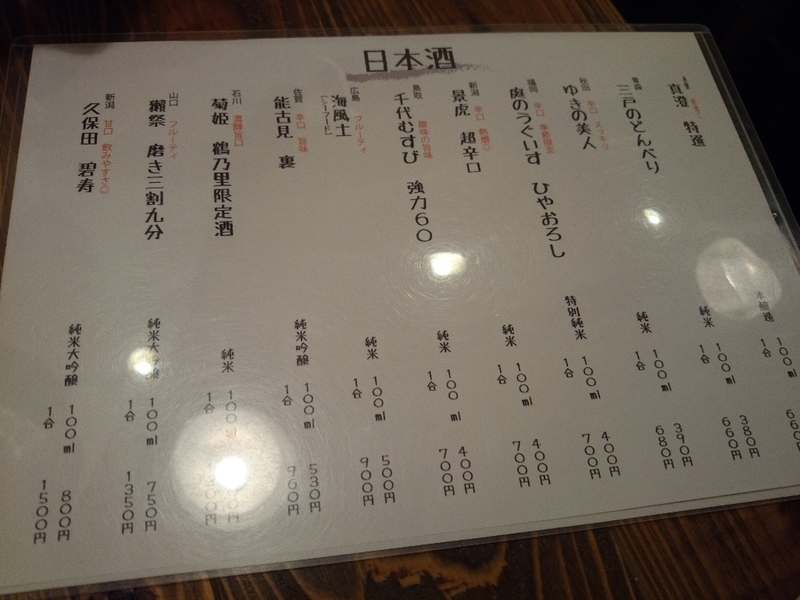 日本酒
真澄 特選
本醸造
100ml
青森
三戸のどんべり
純米
100ml 380円
1合 660円
秋田 辛口 スッキリ
ゆきの美人
純米
100ml 390円
1合 680円
福岡 辛口 季節限定
庭のうぐいす ひやおろし
特別純米
100ml 400円
1合 700円
新潟 辛口 熱燗○
景虎 超辛口
純米
100ml 400円
1合 700円
鳥取 酸味の旨味
千代むすび 強力60
純米
100ml 400円
1合 700円
広島 フルーティ
海風土
(シーフード)
純米
100ml 500円
1合 900円
佐賀 辛口 旨味
能古見 裏
純米吟醸
100ml 530円
1合 960円
石川 濃醇旨口
菊姫 鶴乃里限定酒
純米
100ml
1合
山口 フルーティ
獺祭 磨き三割九分
純米大吟醸
100ml 750円
1合 1350円
新潟 甘口 飲みやすさ○
久保田 碧寿
純米大吟醸
100ml 800円
1合 1500円